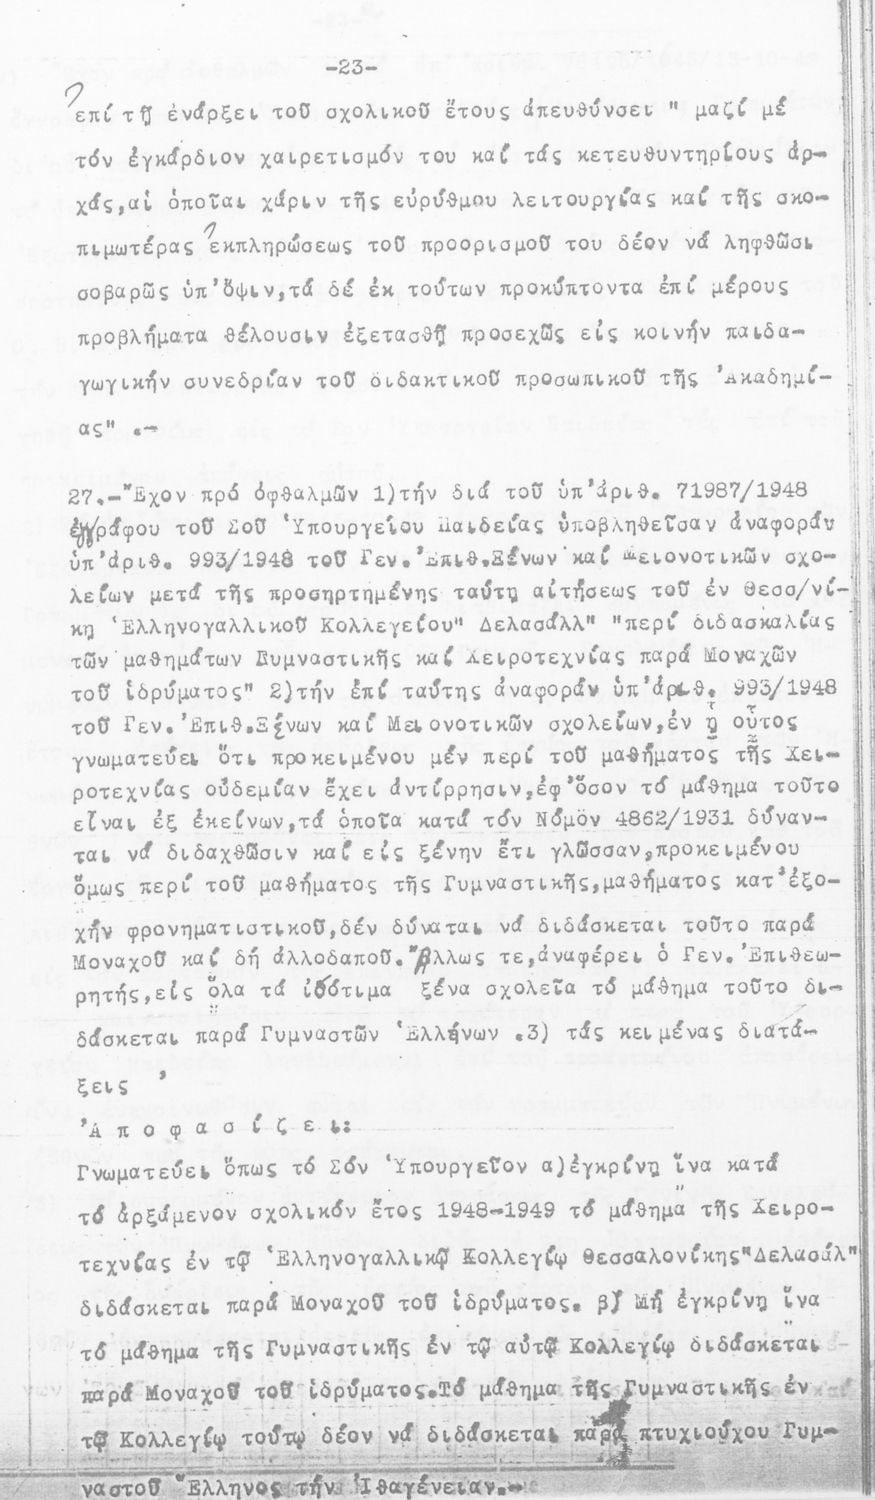 -23-
ἐπί τῇ ἐνάρξει τοῦ σχολικοῦ ἔτους ἀπευθύνσει " μαζί μέ
τόν ἐγκάρδιον χαιρετισμόν του καί τάς κετευθυντηρίους ἀρ-
χάς,αἱ ὁποῖαι χάριν τῆς εὐρύθμου λειτουργίας καί τῆς σκο-
πιμωτέρας ἐκπληρώσεως τοῦ προορισμοῦ του δέον νά ληφθῶσι
σοβαρῶς ὑπ'ὄψιν,τά δέ ἐκ τούτων προκύπτοντα ἐπί μέρους
προβλήματα θέλουσιν ἐξετασθῆ προσεχῶς εἰς κοινήν παιδα-
γωγικήν συνεδρίαν τοῦ διδακτικοῦ προσωπικοῦ τῆς Ἀκαδημί-
ας" .-
27.-Ἔχον πρό ὀφθαλμῶν 1)τήν διά τοῦ ὑπ'ἀριθ. 71987/1948
ἐγγράφου τοῦ Σοῦ Ὑπουργείου Παιδείας ὑποβληθεῖσαν ἀναφοράν
ὑπ'ἀριθ. 993/1948 τοῦ Γεν.Ἐπιθ.Ξένων καί Μειονοτικῶν σχο-
λείων μετά τῆς προσηρτημένης ταύτῃ αἰτήσεως τοῦ ἐν Θεσσ/νί-
κῃ Ἑλληνογαλλικοῦ Κολλεγείου" Δελασάλλ" "περί διδασκαλίας
τῶν μαθημάτων Γυμναστικῆς καί Χειροτεχνίας παρά Μοναχῶν
τοῦ ἱδρύματος" 2)τήν ἐπί ταύτης ἀναφοράν ὑπ'ἀριθ. 993/1948
τοῦ Γεν.Ἐπιθ.Ξένων καί Μειονοτικῶν σχολείων,ἐν ᾗ οὗτος
γνωματεύει ὅτι προκειμένου μέν περί τοῦ μαθήματος τῆς Χει-
ροτεχνίας οὐδεμίαν ἔχει ἀντίρρησιν,ἐφ'ὅσον τό μάθημα τοῦτο
εἶναι ἐξ ἐκείνων,τά ὁποῖα κατά τόν Νόμον 4862/1931 δύναν-
ται νά διδαχθῶσιν καί εἰς ξένην ἔτι γλῶσσαν,προκειμένου
ὅμως περί τοῦ μαθήματος τῆς Γυμναστικῆς,μαθήματος κατ'ἐξο-
χήν φρονηματιστικοῦ,δέν δύναται νά διδάσκεται τοῦτο παρά
Μοναχοῦ καί δή ἀλλοδαποῦ. Ἄλλως τε,ἀναφέρει ὁ Γεν.Ἐπιθεω-
ρητής,εἰς ὅλα τά ἰσότιμα ξένα σχολεῖα τό μάθημα τοῦτο δι-
δάσκεται παρά Γυμναστῶν Ἑλλήνων .3) τάς κειμένας διατά-
ξεις ,
Ἀ π ο φ α σ ί ζ ε ι:
Γνωματεύει ὅπως τό Σόν Ὑπουργεῖον α)ἐγκρίνῃ ἵνα κατά
τό ἀρξάμενον σχολικόν ἔτος 1948-1949 τό μάθημα τῆς Χειρο-
τεχνίας ἐν τῷ Ἑλληνογαλλικῷ Κολλεγίῳ Θεσσαλονίκης"Δελασάλ"
διδάσκεται παρά Μοναχοῦ τοῦ ἱδρύματος. β) Μή ἐγκρίνῃ ἵνα
τό μάθημα τῆς Γυμναστικῆς ἐν τῷ αὐτῷ Κολλεγίῳ διδάσκεται
παρά Μοναχοῦ τοῦ ἱδρύματος.Τό μάθημα τῆς Γυμναστικῆς ἐν
τῷ Κολλεγίῳ τούτῳ δέον νά διδάσκεται παρά πτυχιούχου Γυμ-
ναστοῦ Ἕλληνος τήν Ἰθαγένειαν.-